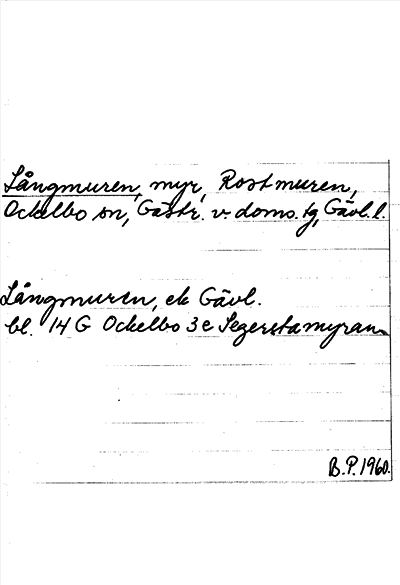 Långmuren, myr, Rostmuren,
Ockelbo sn, Gästr. v. doms. tg, Gävl. l.
Långmuren, ek Gävl.
bl. 14 G Ockelbo 3 e Segerstamyran
B.P. 1960.